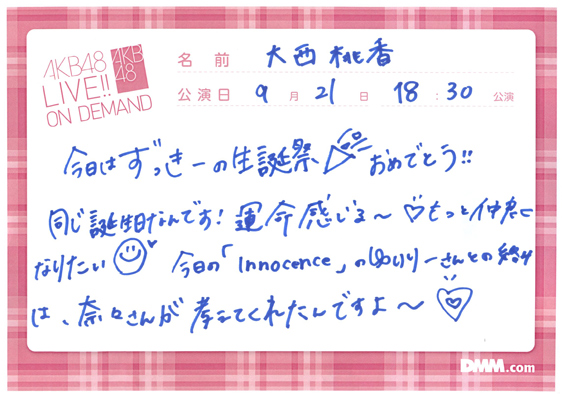 AKB48
LIVE!!
ON DEMAND
AKB
48
名前 大西桃香
公演日 9月21日 18:30 公演
今日はずっきーの生誕祭 おめでとう!!
同じ誕生日なんです! 運命感じる〜♡もっと仲良く
なりたい 今日の「Innocence」のゆいりーさんとの絡み
は、奈々さんが考えてくれたんですよ〜
DMM.com